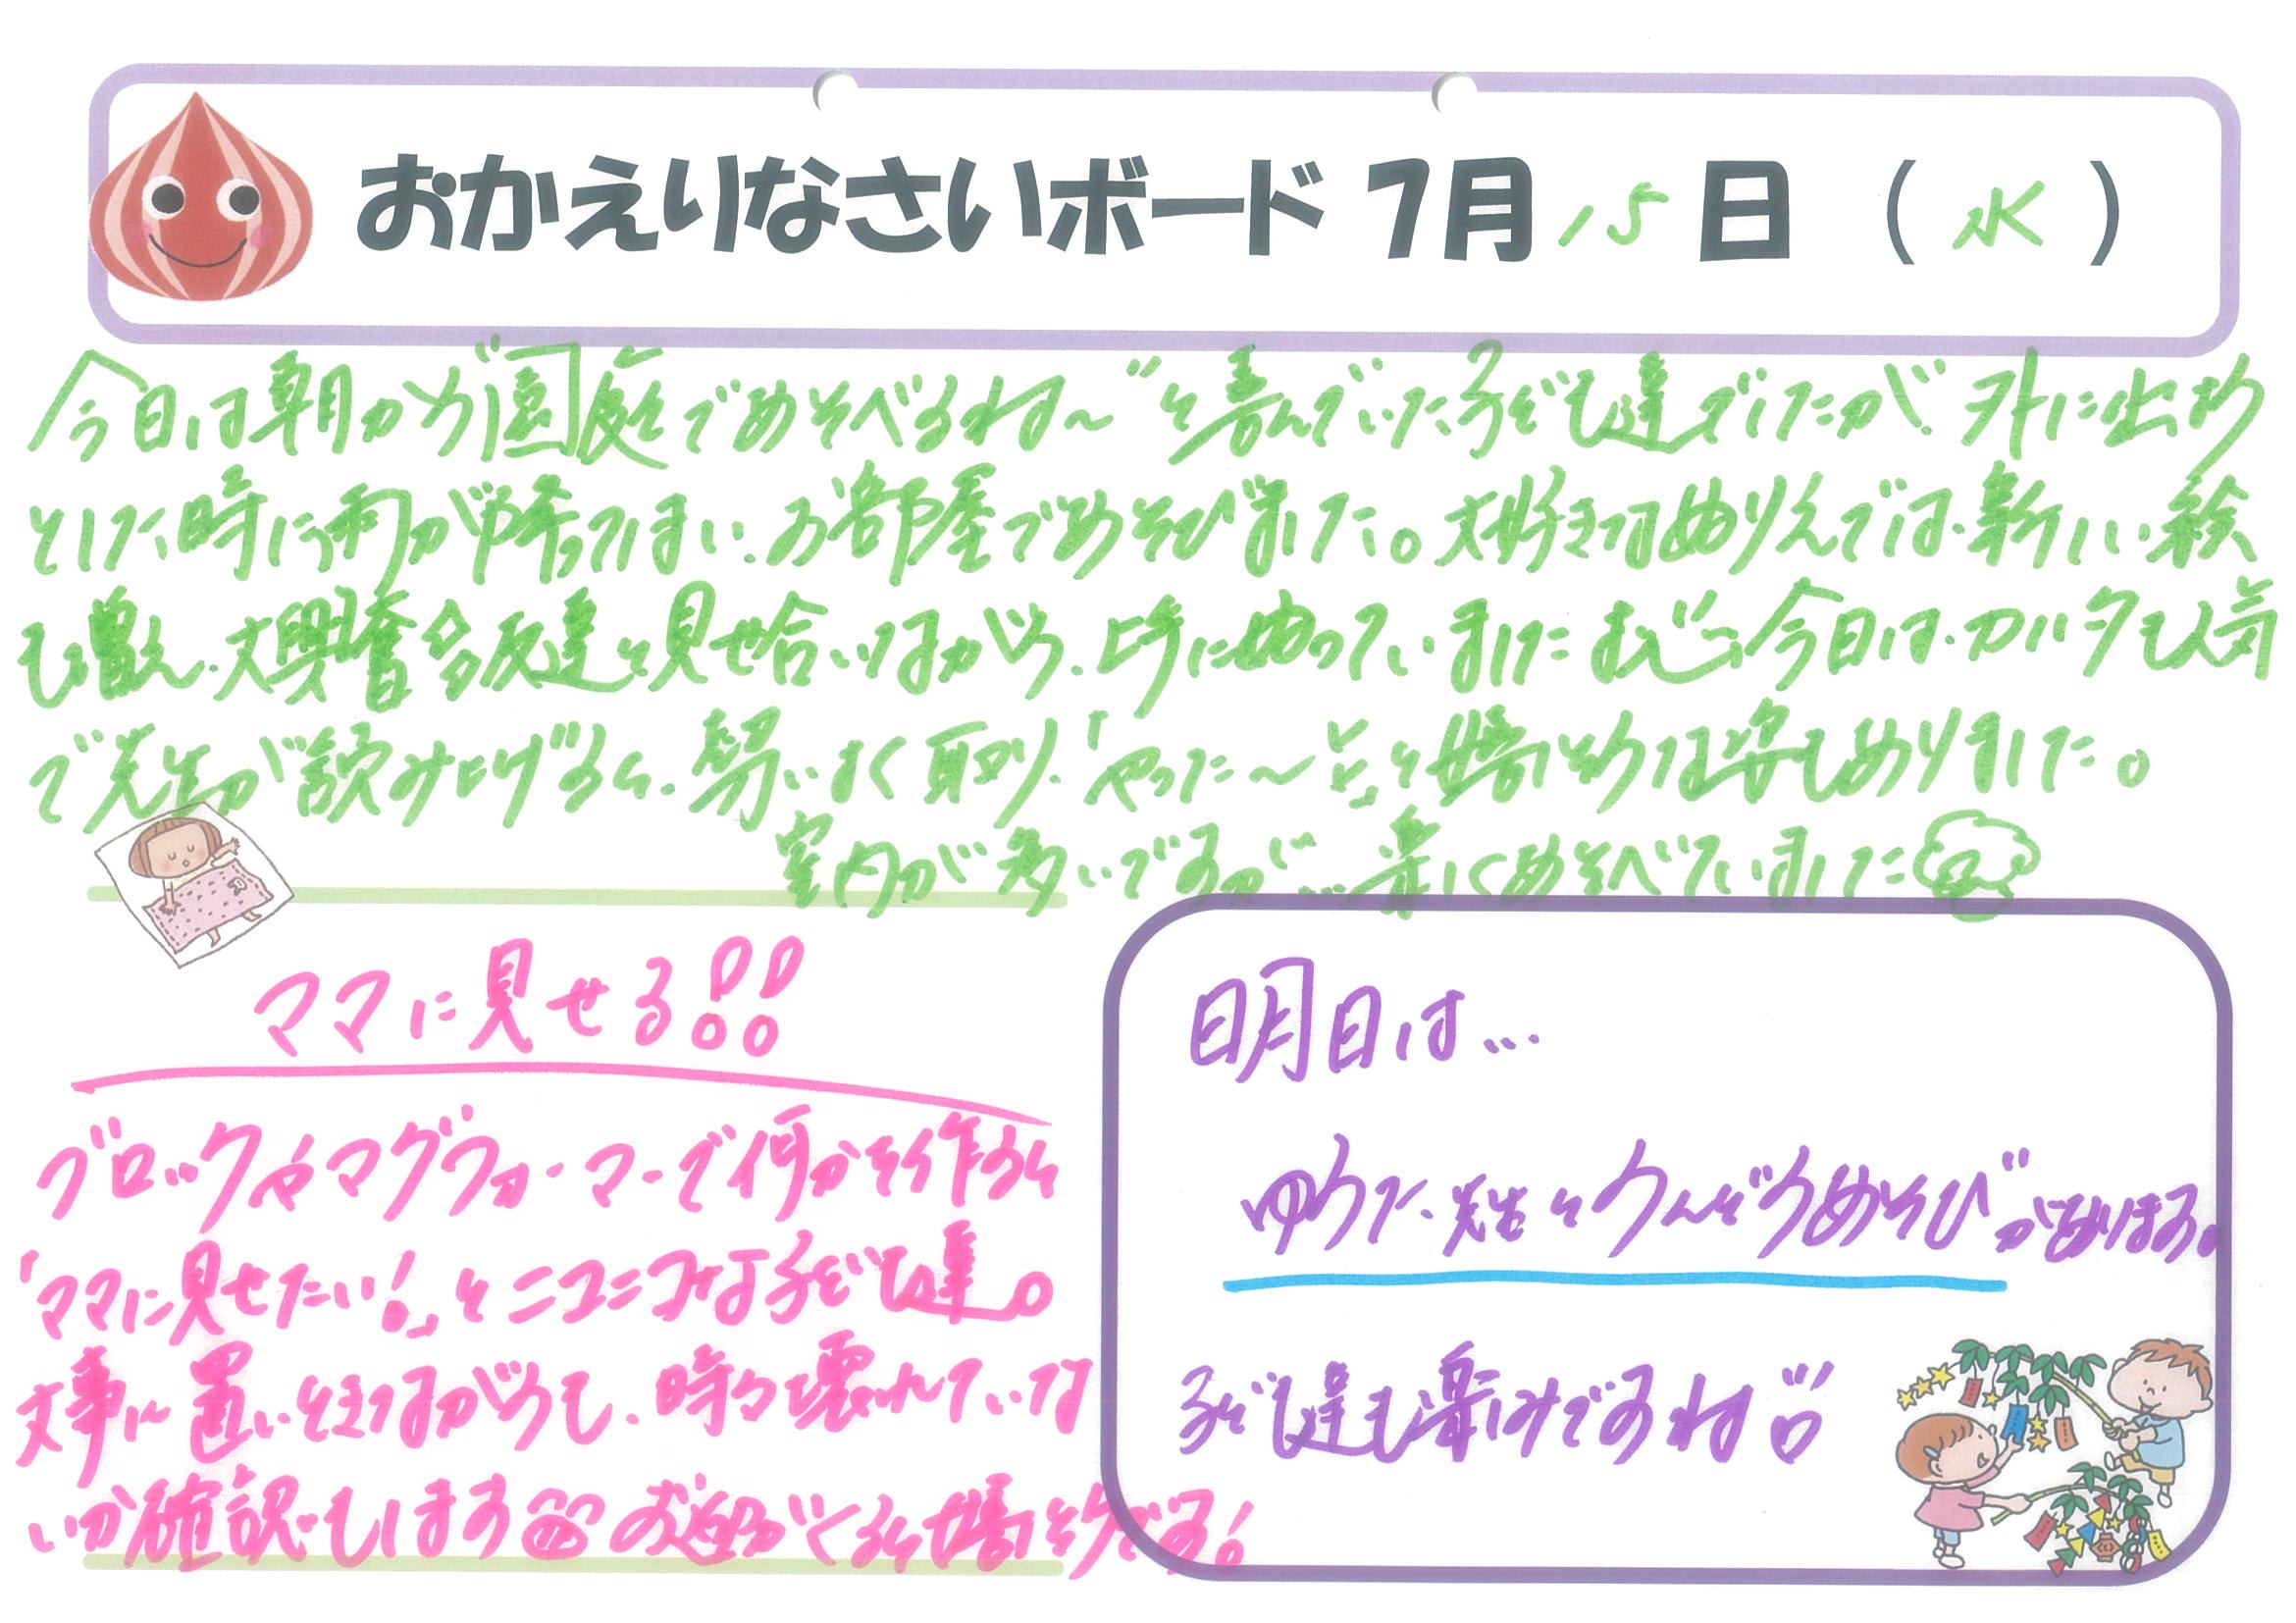 おかえりなさいボード 7月15日(水)
今日は朝から"園庭であそべるね〜"と喜んでいた子ども達でしたが、外に出よう
とした時に雨が降ってしまい、お部屋であそびました。大好きなぬりえでは、新しい絵
も増え、大興奮!!お友達と見せ合いながら、上手にぬっていました。また、今日は、カルタも人気
で先生が読み上げると、勢いよく取り、「やった〜!!」と嬉しそうな姿もありました。
室内が多いですが…楽しくあそべていました
ママに見せる!!
ブロックやマグフォーマーで何かを作ると
「ママに見せたい!」とニコニコな子ども達。
大事に置いときながらも、時々壊れていな
いか確認もします お迎えがくると嬉しそうです!
明日は…
ゆうた先生とうんどうあそび"があります。
子ども達も楽しみですね!!